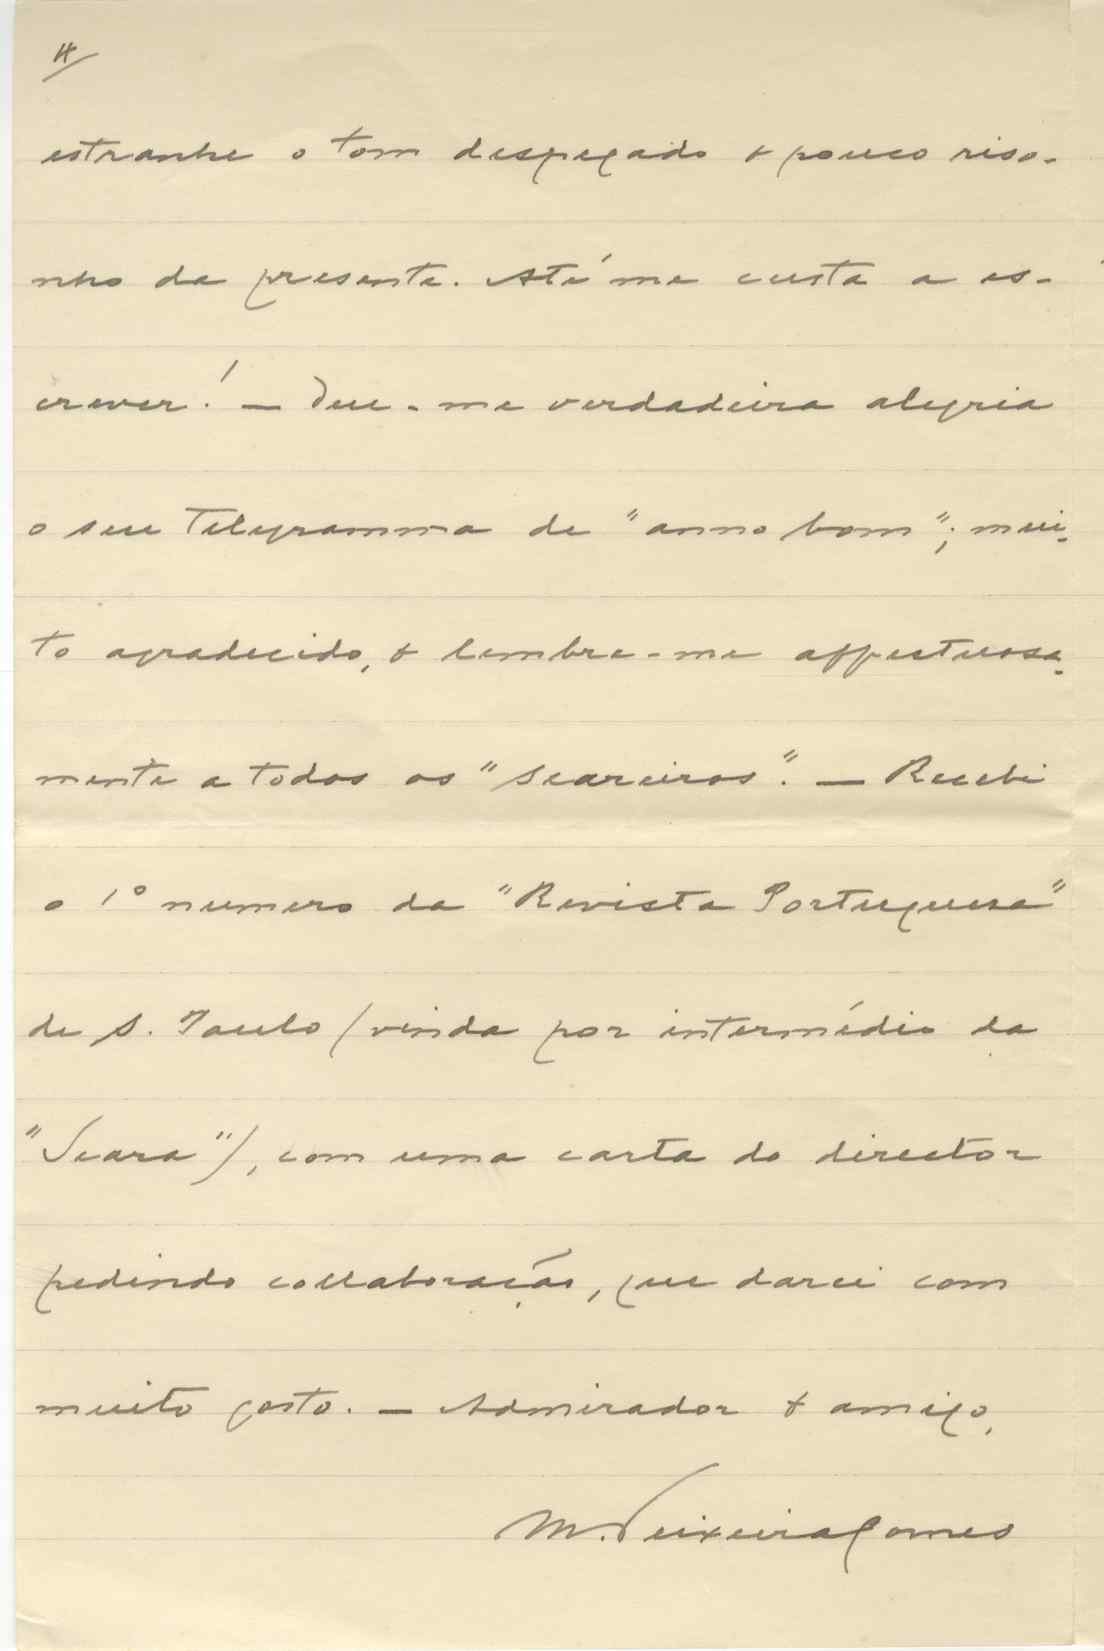 4/
estranhe o tom despegado & pouco riso-
nho da presente. Até me custa a es-
crever! — Deu-me verdadeira alegria
o seu telegramma de "anno bom"; mui-
to agradecido, & lembre-me affectuosa-
mente a todos os "seareiros". — Recebi
o 1º numero da "Revista Portuguesa"
de S. Paulo (vinda por intermédio da
"Seara"), com uma carta do director
pedindo collaboração, que darei com
muito gosto. — Admirador & amigo,
M. Teixeira Gomes